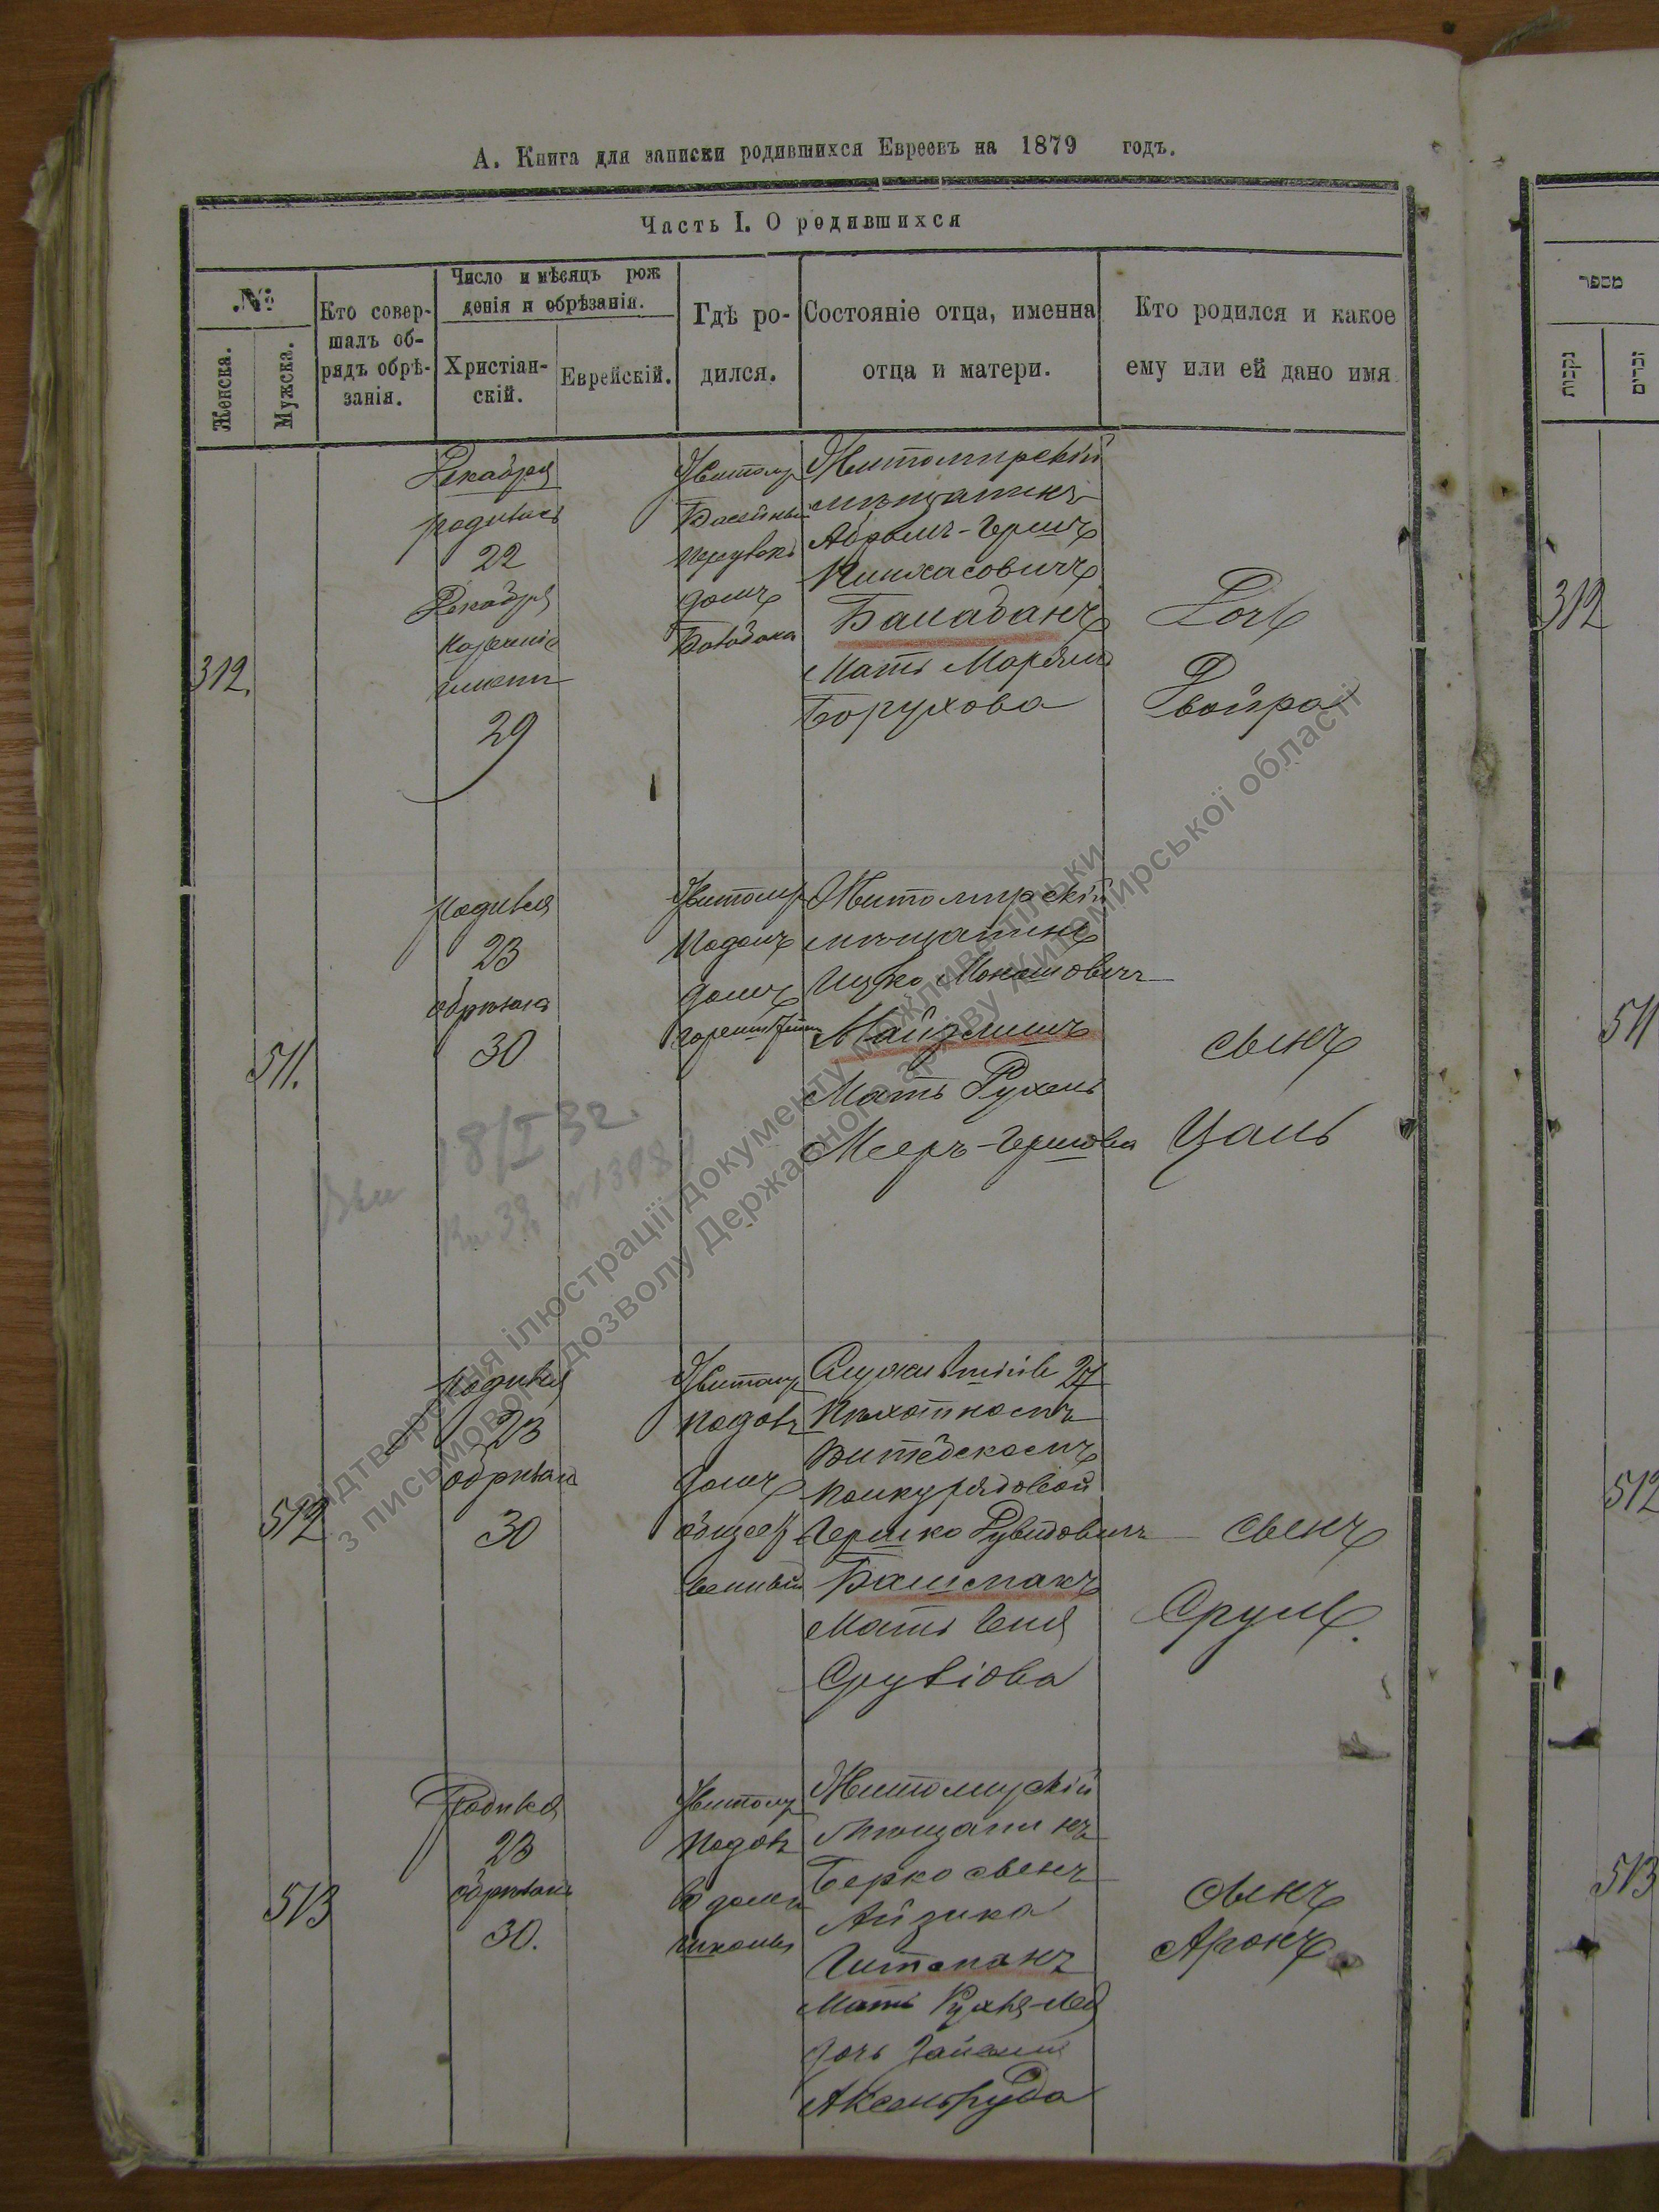 А. Книга для записки родившихся Евреевъ на 1879 годъ.
Часть I. О родившихся
№
Женска.
Мужска.
Кто совер-
шалъ об-
рядъ обрѣ-
занія.
Число и мѣсяцъ рож
денія и обрѣзанія.
Христіан-
скій.
Еврейскій.
Гдѣ ро-
дился.
Состояніе отца, именна
отца и матери.
Кто родился и какое
ему или ей дано имя
312.
Декабря
родилась
22
Декабря
наречено
29
Житомир
домъ
Житомирскій
мѣщанинъ
Абрамъ-Гершъ
Пинхасовичъ
Балабанъ
Мать Марьям
Борухова
Дочь
Двойра
511.
родился
23
обрѣзанъ
30
Житомир
Подолъ
домъ
Житомирскій
мѣщанинъ
Ицко Мошковичъ
Майзлишъ
Мать Рухель
Мееръ-Гершова
сынъ
Цаль
8/I 32
512
родился
23
обрѣзанъ
30
Житомир
Подолъ
домъ
Служившій въ 27
Пѣхотномъ
Витебскомъ
полку рядовой
Гершко Рувидовичъ
Башмакъ
Мать Еня
Срулiова
сынъ
Сруль.
513
Родился
23
обрѣзанъ
30.
Житомир
Подолъ
въ домѣ
школы
Житомирскій
Мѣщанинъ
Берко сынъ
Айзика
Гитманъ
Мать Рухля-Лея
дочь
Аксельруда
сынъ
Аронъ
מספר
נקבות
זכרים
312
511
512
513
Відтворення ілюстрації документу можливе тільки
з письмового дозволу Державного архіву Житомирської області